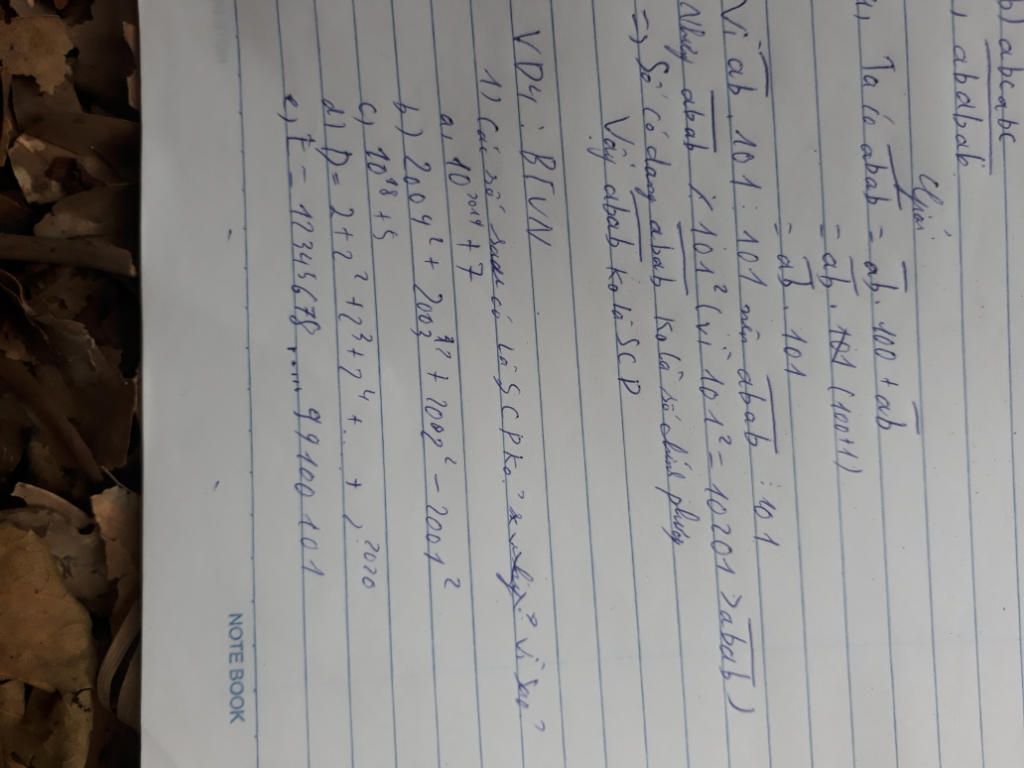 b) abcabc
abdbab
Giải
Ta có abab = ab.100 + ab
= ab.101 (100+1)
= ab.101
Vì ab.101 ⋮ 101 nên abab ⋮ 101
Nhưng abab ⋮̸ 101² (vì 101² = 10201 > abab)
=> Số có dạng abab ko là số chính phương
Vậy abab ko là SCP
VD4: BTVN
1) Các số sau có là SCP ko? Vì sao?
a, 10²⁰¹⁹ + 7
b) 2004² + 2003² + 2002² - 2001²
c, 10⁹⁸ + 5
d) D = 2 + 2² + 2³ + 2⁴ + .... + 2²⁰²⁰
e, E = 12345678.....99100101
NOTE BOOK